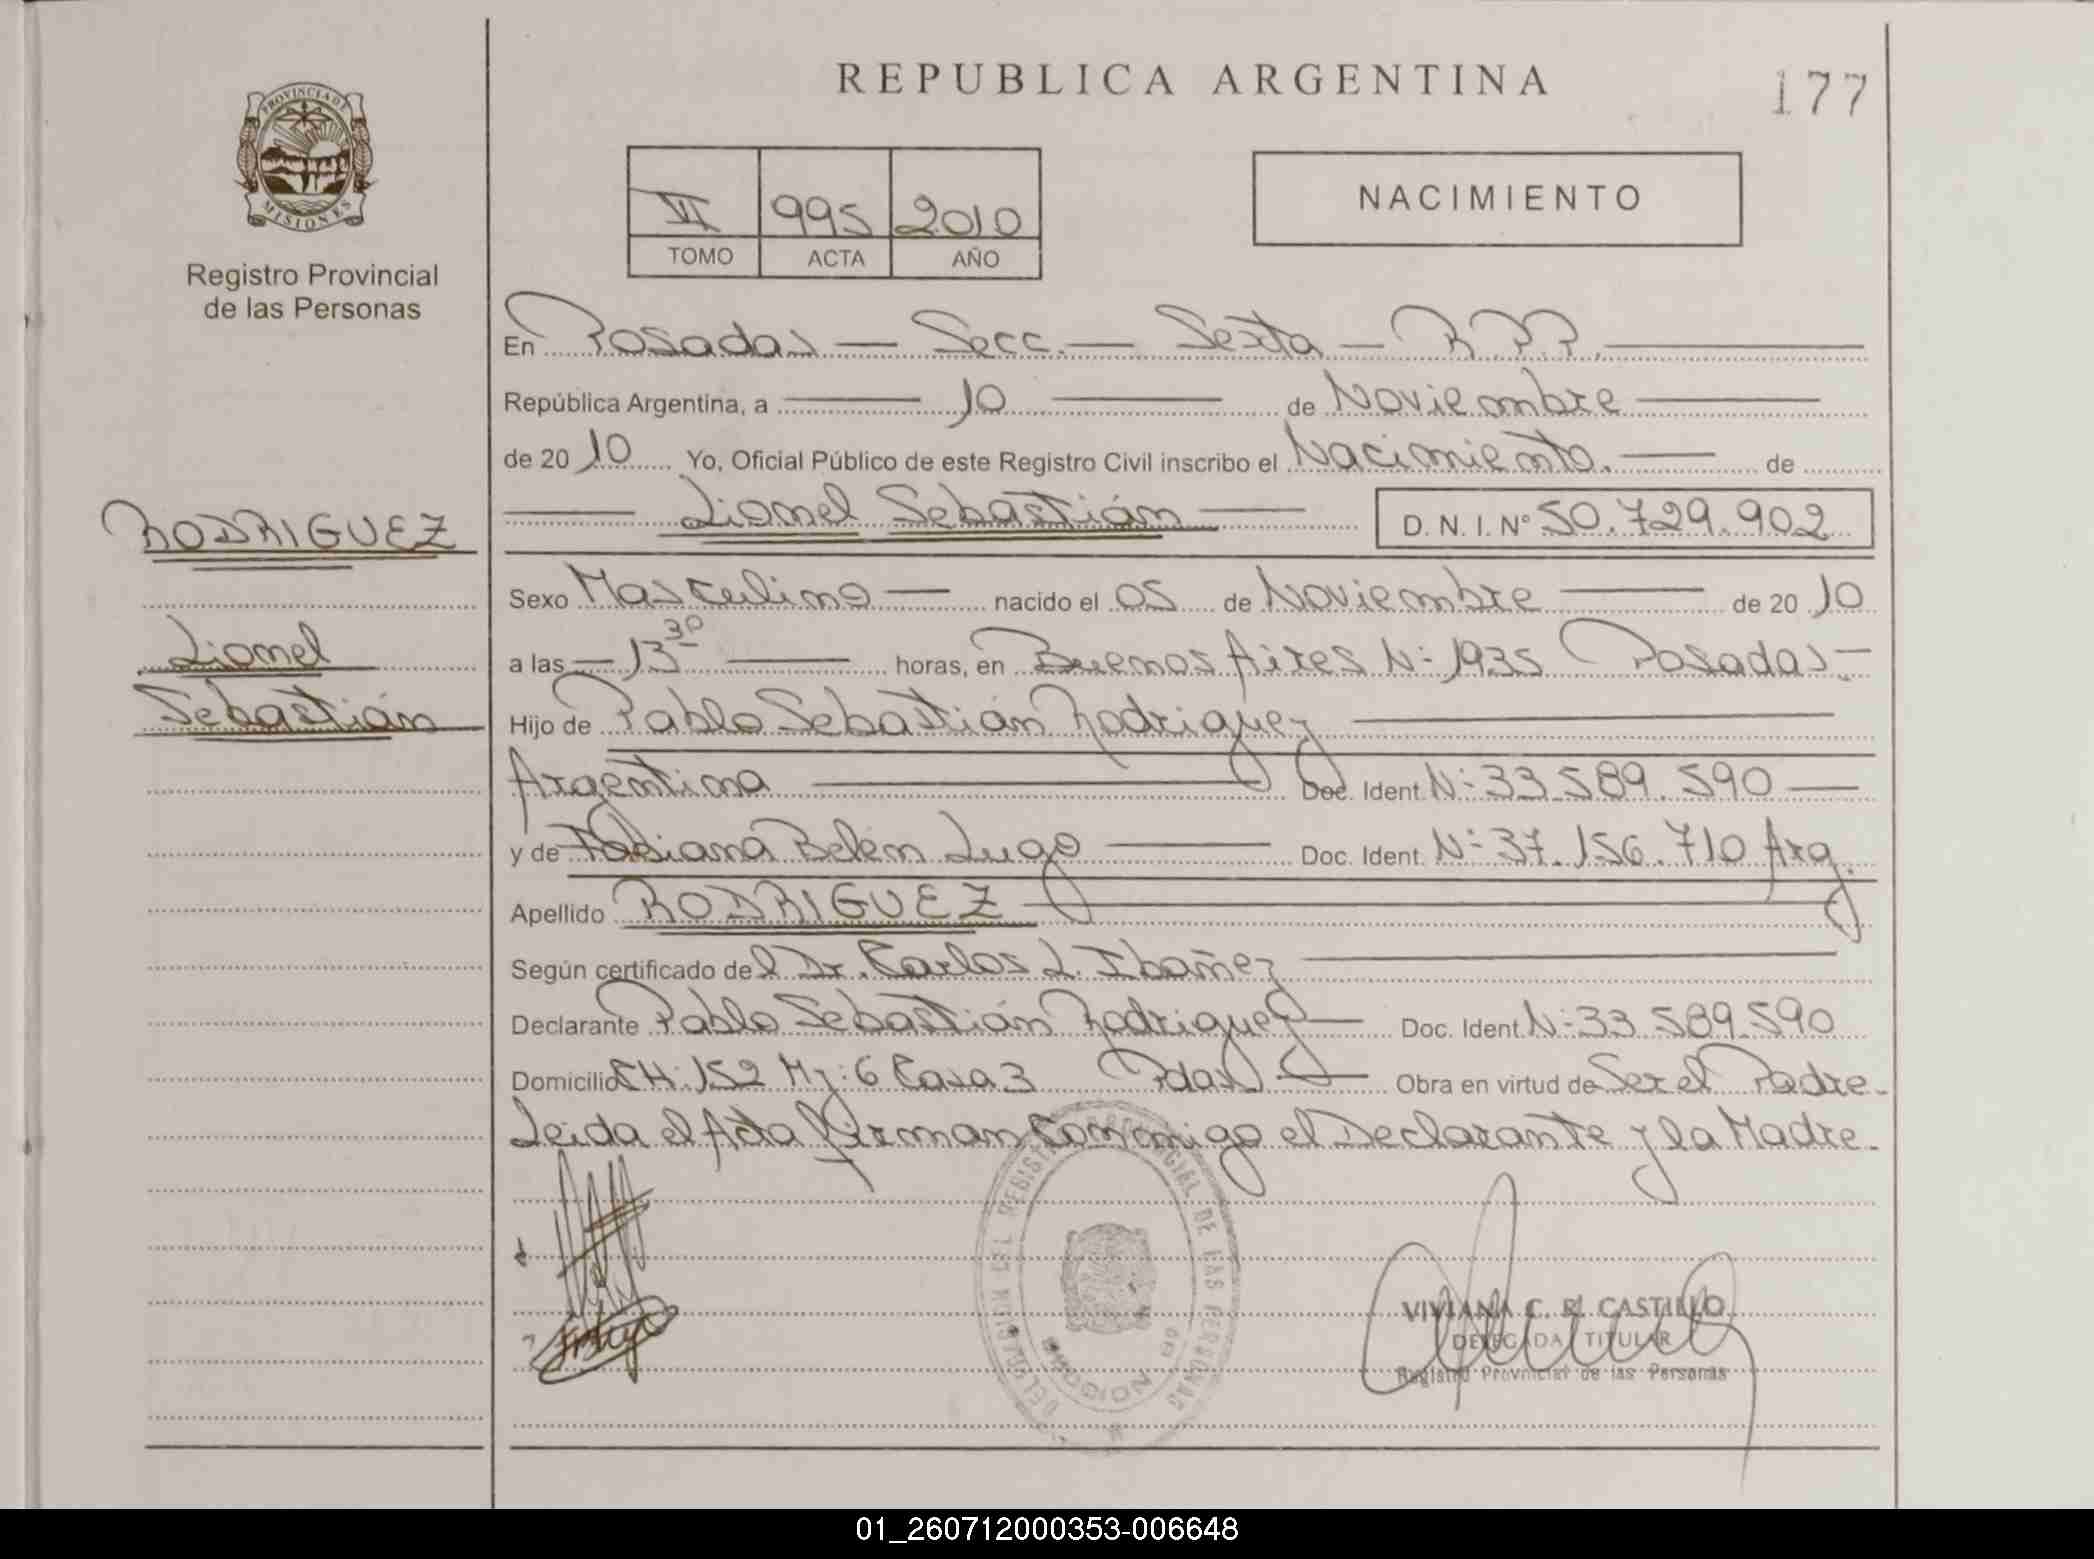 REPUBLICA ARGENTINA
177
PROVINCIA DE MISIONES
Registro Provincial
de las Personas
VI 995 2010
TOMO ACTA AÑO
NACIMIENTO
En Posadas — Secc. — Sexta — R.P.P.
República Argentina, a 10 de Noviembre
de 20 10 Yo, Oficial Público de este Registro Civil inscribo el Nacimiento. de
Lionel Sebastián D. N. I. Nº 50.729.902
RODRIGUEZ
Lionel
Sebastián
Sexo Masculino nacido el 05 de Noviembre de 20 10
a las 13 30 horas, en Buenos Aires Nº 1935 Posadas
Hijo de Pablo Sebastián Rodriguez
Argentina Doc. Ident. Nº 33.589.590
y de Fabiana Belén Lugo Doc. Ident. Nº 37.156.710 Arg.
Apellido RODRIGUEZ
Según certificado del Dr. Carlos L. Ibañez
Declarante Pablo Sebastián Rodriguez Doc. Ident. Nº 33.589.590
Domicilio CH: 152 Mz: 6 Casa 3 Pdas. Obra en virtud de Ser el Padre.
Leida el Acta firman Conmigo el Declarante y la Madre.
VIVIANA C. R. CASTILLO
DELEGADA TITULAR
Registro Provincial de las Personas
01_260712000353-006648